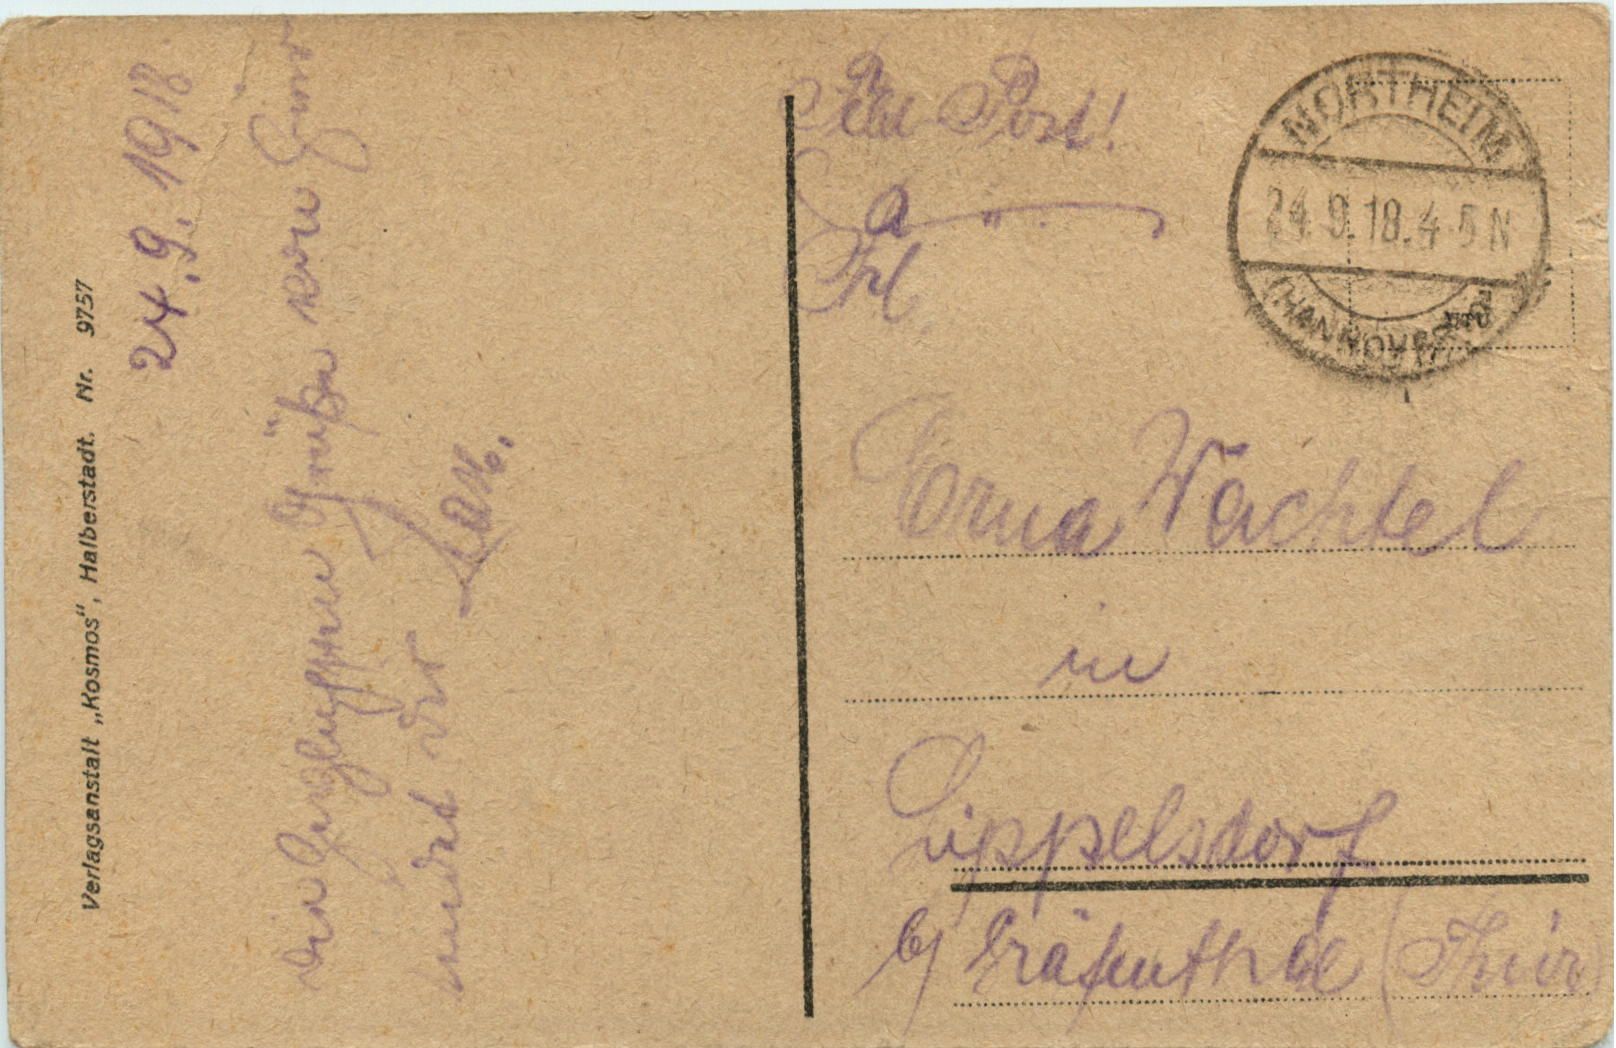 Verlagsanstalt „Kosmos", Halberstadt. Nr. 9757
24. 9. 1918.
Die herzlichsten Grüße von
sendet dir
Feld Post!
Frl.
Erna Wachtel
in
Lippelsdorf
b/ Gräfenthal (Thür
NORTHEIM
24.9.18.4-5N
(HANNOVER)